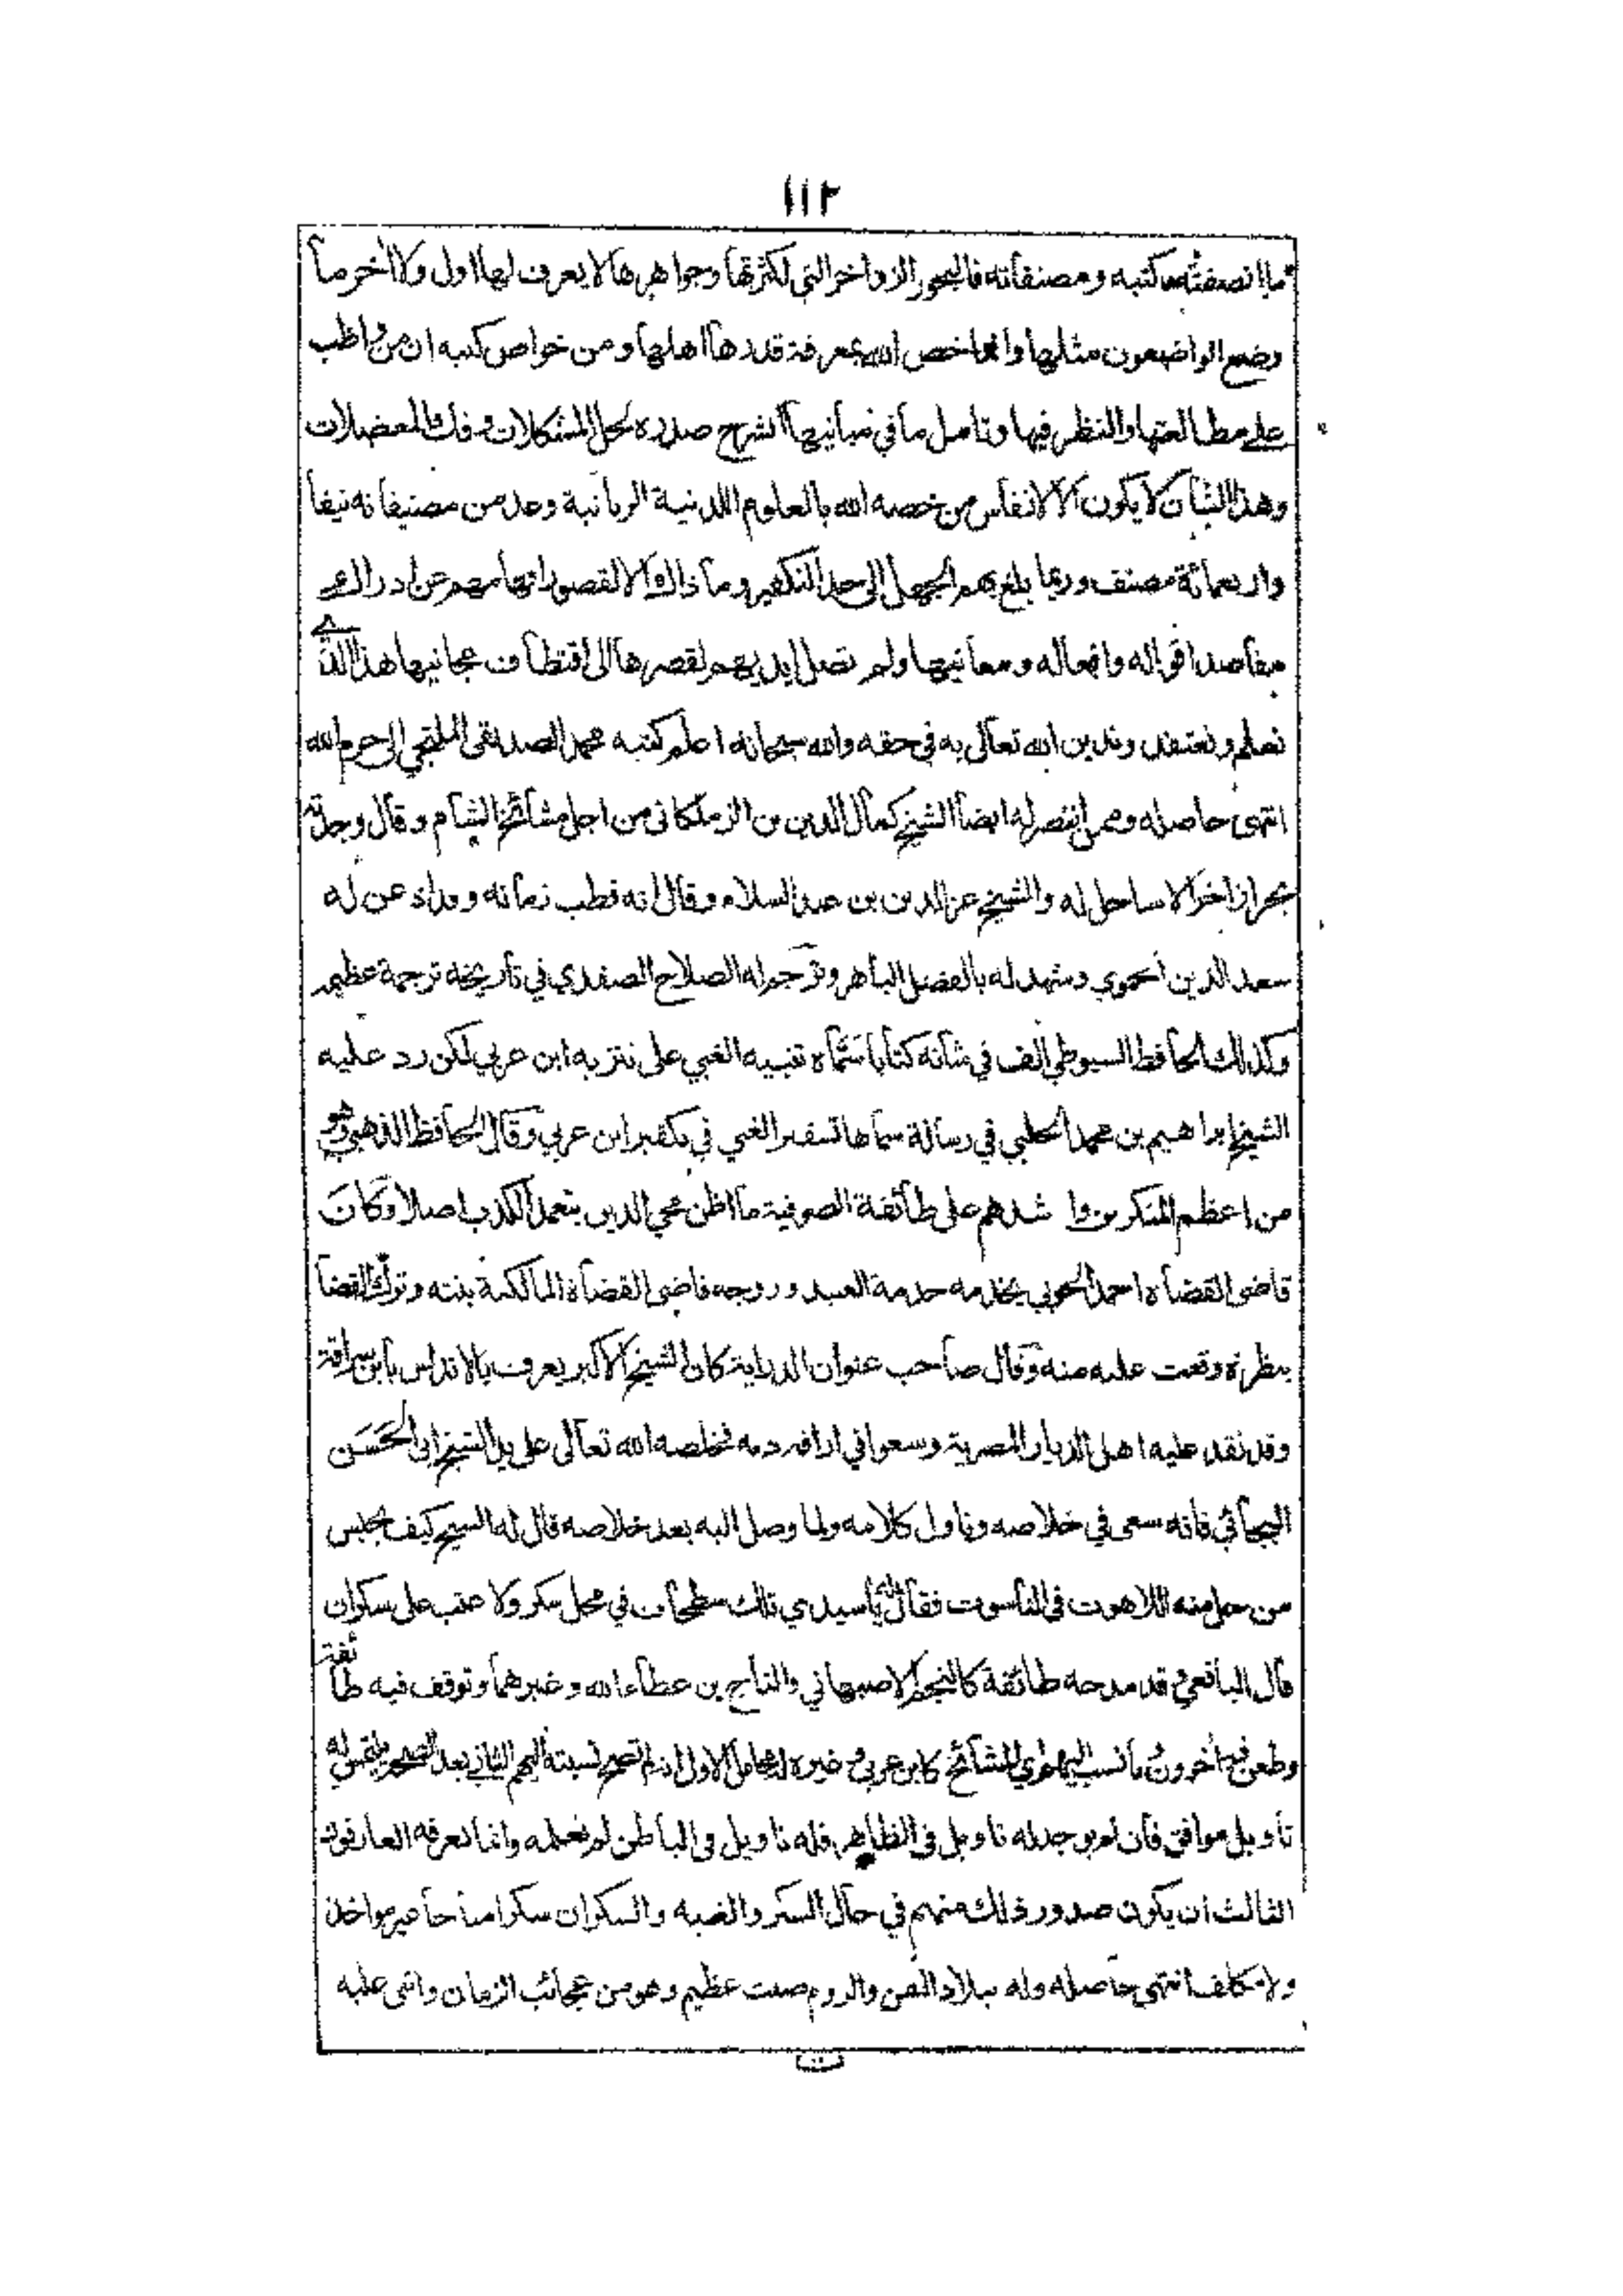 ١١٢
ما انصفته اما كتبه ومصنفاته فالبحور الزواخر التي لكثرتها وجواهرها لا يعرف لها اول ولا اخر ما
وضع الواضعون مثلها وانما خص الله بمعرفة قدرها اهلها ومن خواص كتبه ان من واظب
على مطالعتها والنظر فيها وتامل ما في مبانيها انشرح صدره لحل المشكلات وفك المعضلات
وهذا الشأن لا يكون الا لانفاس من خصه الله بالعلوم اللدنية الربانية وعد من مصنفاته نيفا
واربعمائة مصنف وربما بلغ بهم الجهل الى حد التكفير وما ذاك الا لقصور افهامهم عن ادراك
مقاصد اقواله وافعاله ومعانيها ولم تصل ايديهم لقصرها الى اقتطاف مجانيها هذا الذي
نعلم ونعتقد وندين الله تعالى به في حقه والله سبحانه اعلم كتبه محمد الصديقي الملتجي الى حرم الله
انتهى حاصله وممن انتصر له ايضا الشيخ كمال الدين بن الزملكاني من اجل مشائخ الشام وقال وجدته
بحرا زاخرا لا ساحل له والشيخ عز الدين بن عبد السلام وقال انه قطب زمانه
سعد الدين الحموي وشهد له بالفضل الباهر وترجم له الصلاح الصفدي في تاريخه ترجمة عظيمة
وكذلك الحافظ السيوطي الف في شانه كتابا سماه تنبيه الغبي على تنزيه ابن عربي لكن رد عليه
الشيخ ابراهيم بن محمد الحلبي في رسالة سماها تسفيه الغبي في تكفير ابن عربي وقال الحافظ الذهبي وهو
من اعظم المنكرين واشدهم على طائفة الصوفية ما اظن محي الدين يتعمد الكذب اصلا وكان
قاضي القضاة احمد الخوبي يخدمه خدمة العبيد وزوجه قاضي القضاة المالكية بنته وترك القضا
بنظرة وقعت عليه منه وقال صاحب عنوان الدراية كان الشيخ الاكبر يعرف بالاندلس بابن سراقة
وقد نقد عليه اهل الديار المصرية وسعوا في اراقة دمه فخلصه الله تعالى على يد الشيخ ابي الحسن
البجائي فانه سعى في خلاصه وتاول كلامه ولما وصل اليه بعد خلاصه قال له الشيخ كيف يحبس
من حل منه اللاهوت في الناسوت فقال له يا سيدي تلك شطحات في محل سكر ولا عتب على سكران
قال اليافعي قد مدحه طائفة كالنجم الاصبهاني والتاج بن عطاء الله وغيرهما وتوقف فيه طائفة
وطعن فيه آخرون ما نسب الى المشائخ كابن عربي وغيره له محامل الاول انه لم تصح نسبته اليهم الثاني بعد الصحة يلتمس له
تاويل موافق فان لم يوجد له تاويل في الظاهر فله تاويل في الباطن لم نعلمه وانما يعرفه العارفون
الثالث ان يكون صدور ذلك منهم في حال السكر والغيبة والسكران سكرا مباحا غير مواخذ
ولا مكلف انتهى حاصله وله ببلاد اليمن والروم صيت عظيم وهو من عجائب الزمان واثنى عليه